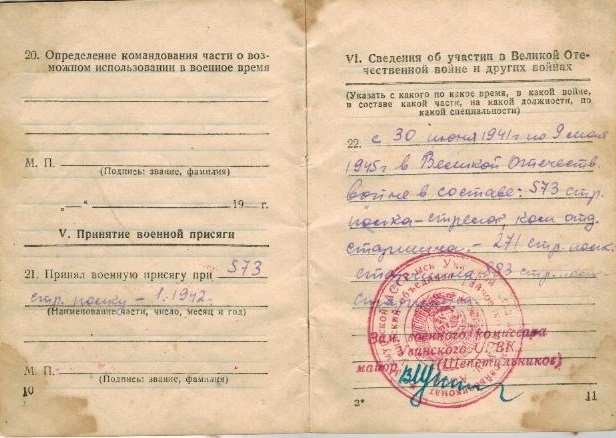 20. Определение командования части о воз-
можном использовании в военное время
М. П.
(Подпись: звание, фамилия)
„ — “ 19 — г.
V. Принятие военной присяги
21. Принял военную присягу при 573
стр. полку – 1.1942.
(Наименование части, число, месяц и год)
М. П.
(Подпись: звание, фамилия)
10
VI. Сведения об участии в Великой Оте-
чественной войне и других войнах
(Указать с какого по какое время, в какой войне,
в составе какой части, на какой должности, по
какой специальности)
22. с 30 июня 1941г. по 9 мая
1945г в Великой Отечеств.
войне в составе: 573 стр.
полка – стрелок ком. отд.
старшина. – 271 стр. полк.
стр. полк
Зам. военного комиссара
Увинского
майор (Щепетильников)
2*
11